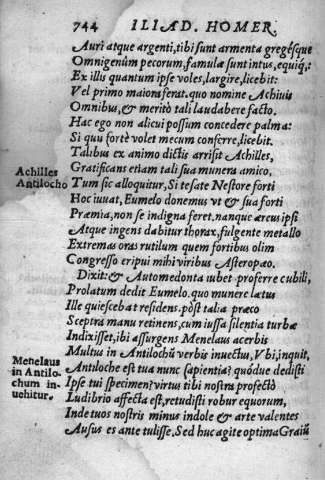 744 ILIAD. HOMER.
Auri atque argenti, tibi sunt armenta gregésque
Omnigenûm pecorum, famulæ sunt intus, equiq́;:
Ex illis quantum ipse voles, largire, licebit:
Vel primo maiora ferat. quo nomine Achiuis
Omnibus, & meritò tali laudabere facto.
Hac ego non alicui possum concedere palma:
Si quu fortè volet mecum conferre, licebit.
Talibus ex animo dictis arrisit Achilles,
Gratificans etiam tali sua munera amico.
Achilles
Antilocho
Tum sic alloquitur, Si te sate Nestore forti
Hoc iuuat, Eumelo donemus vt & sua forti
Præmia, non se indigna feret, nanque æreus ipsi
Atque ingens dabitur thorax, fulgente metallo
Extremas oras rutilum quem fortibus olim
Congresso eripui mihi viribus Asteropæo.
Dixit: & Automedonta iubet proferre cubili,
Prolatum dedit Eumelo, quo munere lætus
Ille quiescebat residens. pòst talia præco
Sceptra manu retinens, cum iussa silentia turbæ
Indixisset, ibi assurgens Menelaus acerbis
Menelaus
in Antilo-
chum in-
uehitur.
Multis in Antilochũ verbis inuectus, Vbi, inquit,
Antiloche est tua nunc sapientia? quóue dedisti
Ipse tui specimen? virtus tibi nostra profectò
Ludibrio affecta est, retudisti robur equorum,
Inde tuos nostris minus indole & arte valentes
Ausus es ante tulisse, Sed huc agite optima Graiũ